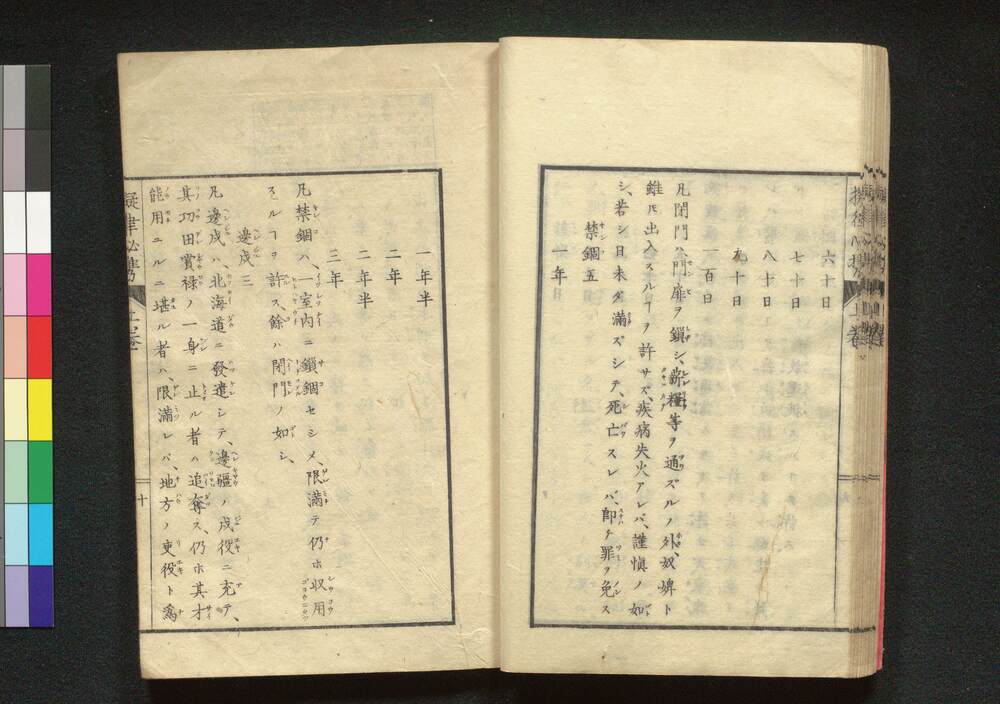 六十日
七十日
八十日
九十日
一百日
凡閉門ハ、門扉ヲ鎖シ、薪糧等ヲ通ズルノ外、奴婢ト
雖𪜈出入スルヿヲ許サズ、疾病失火アレバ、謹愼ノ如
シ、若シ日未ダ滿ズシテ、死亡スレバ、即チ罪ヲ免ス
禁錮五
半年
一年半
二年
二年半
三年
凡禁錮ハ、室內ニ鎖錮セシメ、限滿テ仍ホ收用
スルヿヲ許ス、餘ハ閉門ノ如シ、
邊戍三
凡邊戍ハ、北海道ニ發遣シテ、邊疆ノ戍役ニ充テ、
其功田賞祿ノ一身ニ止ル者ハ追奪ス、仍ホ其才
能用ユルニ堪ル者ハ、限滿レバ、地方ノ吏役ト爲
擬律必携 上卷 十